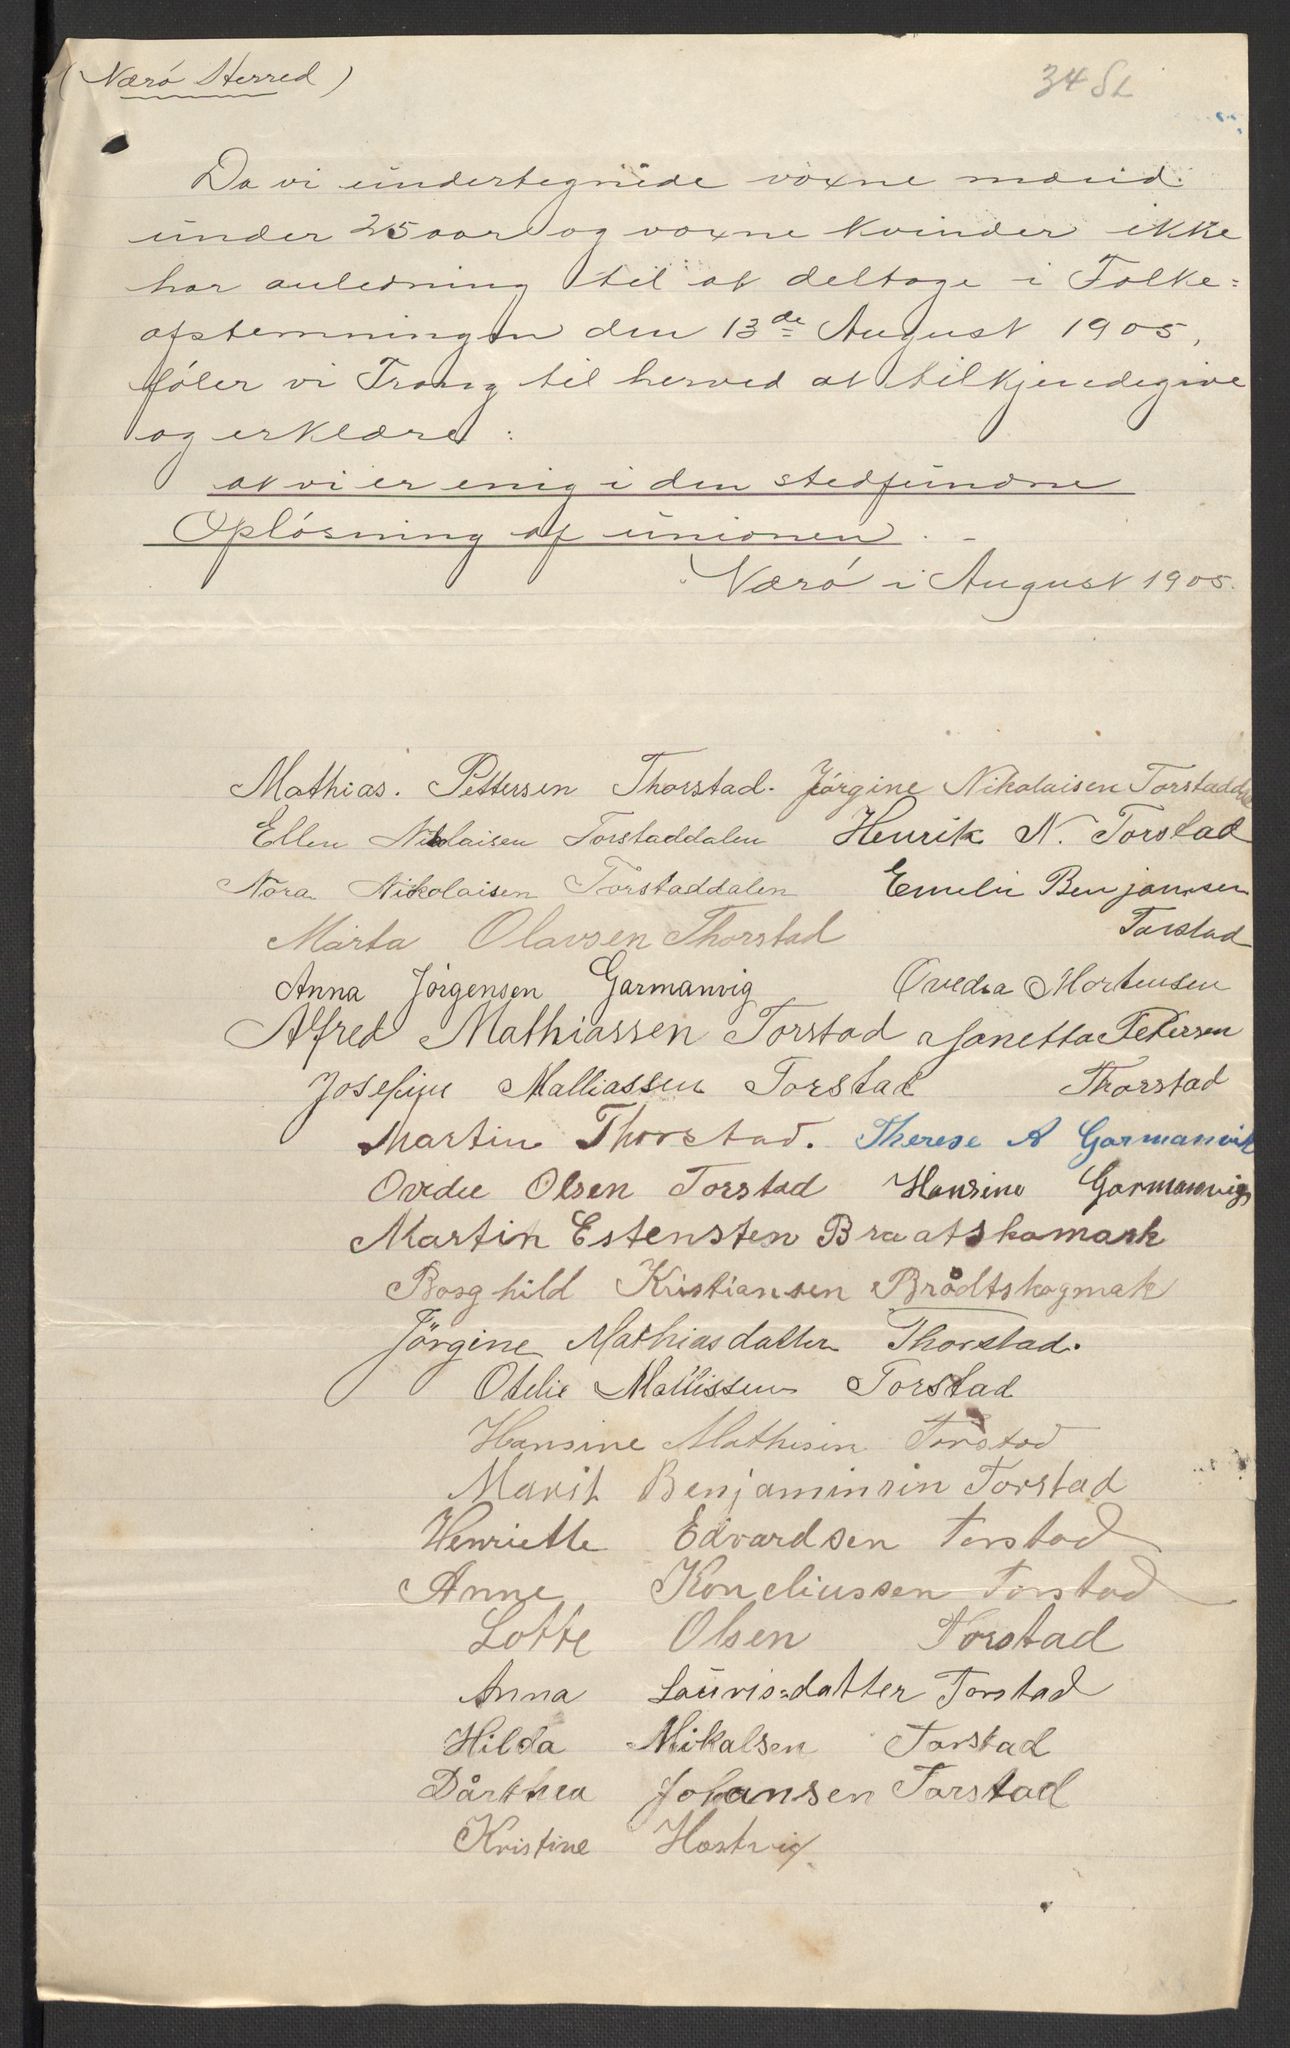 (Nærö Herred)
34 St
Da vi undertegnede voxne mænd
under 25 aar og voxne kvinder ikke
har anledning til at deltage i Folke=
afstemningen den 13de August 1905,
föler vi Trang til herved at tilkjendegive
og erklære:
at vi er enig i den stedfundne
Oplösning af unionen. -
Nærö i August 1905.
Mathias. Pettersen Thorstad. Jörgine Nikolaisen Torstaddal
Ellen Nikolaisen Torstaddalen Henrik N. Torstad
Nora Nikolaisen Torstaddalen Emelie Benjamsen
Marta Olavsen Thorstad Torstad
Anna Jörgensen Garmanvig Ovedia Mortensen
Alfred Mathiassen Torstad Janetta Petersen
Josefine Malliassen Torstad Thorstad
Martin Thorstad. Therese A Garmanvik
Ovedie Olsen Torstad Hansine Garmannvig
Martin Estensten Braatskamark
Borghild Kristiansen Brådtskogmak
Jörgine Mathiasdatter Thorstad.
Otelie Mallissen Torstad
Hansine Mathisin Torstad
Marit Benjaminsin Torstad
Henriette Edvardsen Torstad
Anne Korneliussen Torstad
Lotte Olsen Torstad
Anna Laurisdatter Torstad
Hilda Mikalsen Torstad
Dårthea Johansen Torstad
Kristine Hastvig